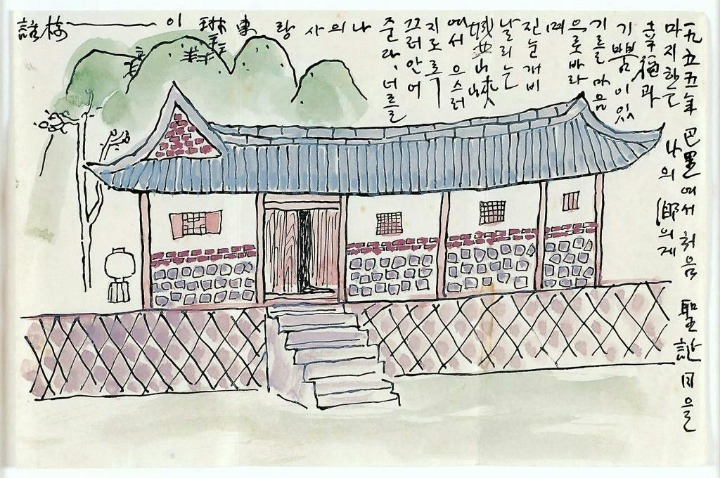 一九五五年 巴里에서 처음 聖誕日을
나의 鄕의게
마지하는
幸福과
기쁨이 있
기를 마음
으로 바라
며
진눈개비
날리는
城北山峽
에서 으스러
지도록
끄러안어
준다. 너를
나의 사랑 東琳이 —— 樹話